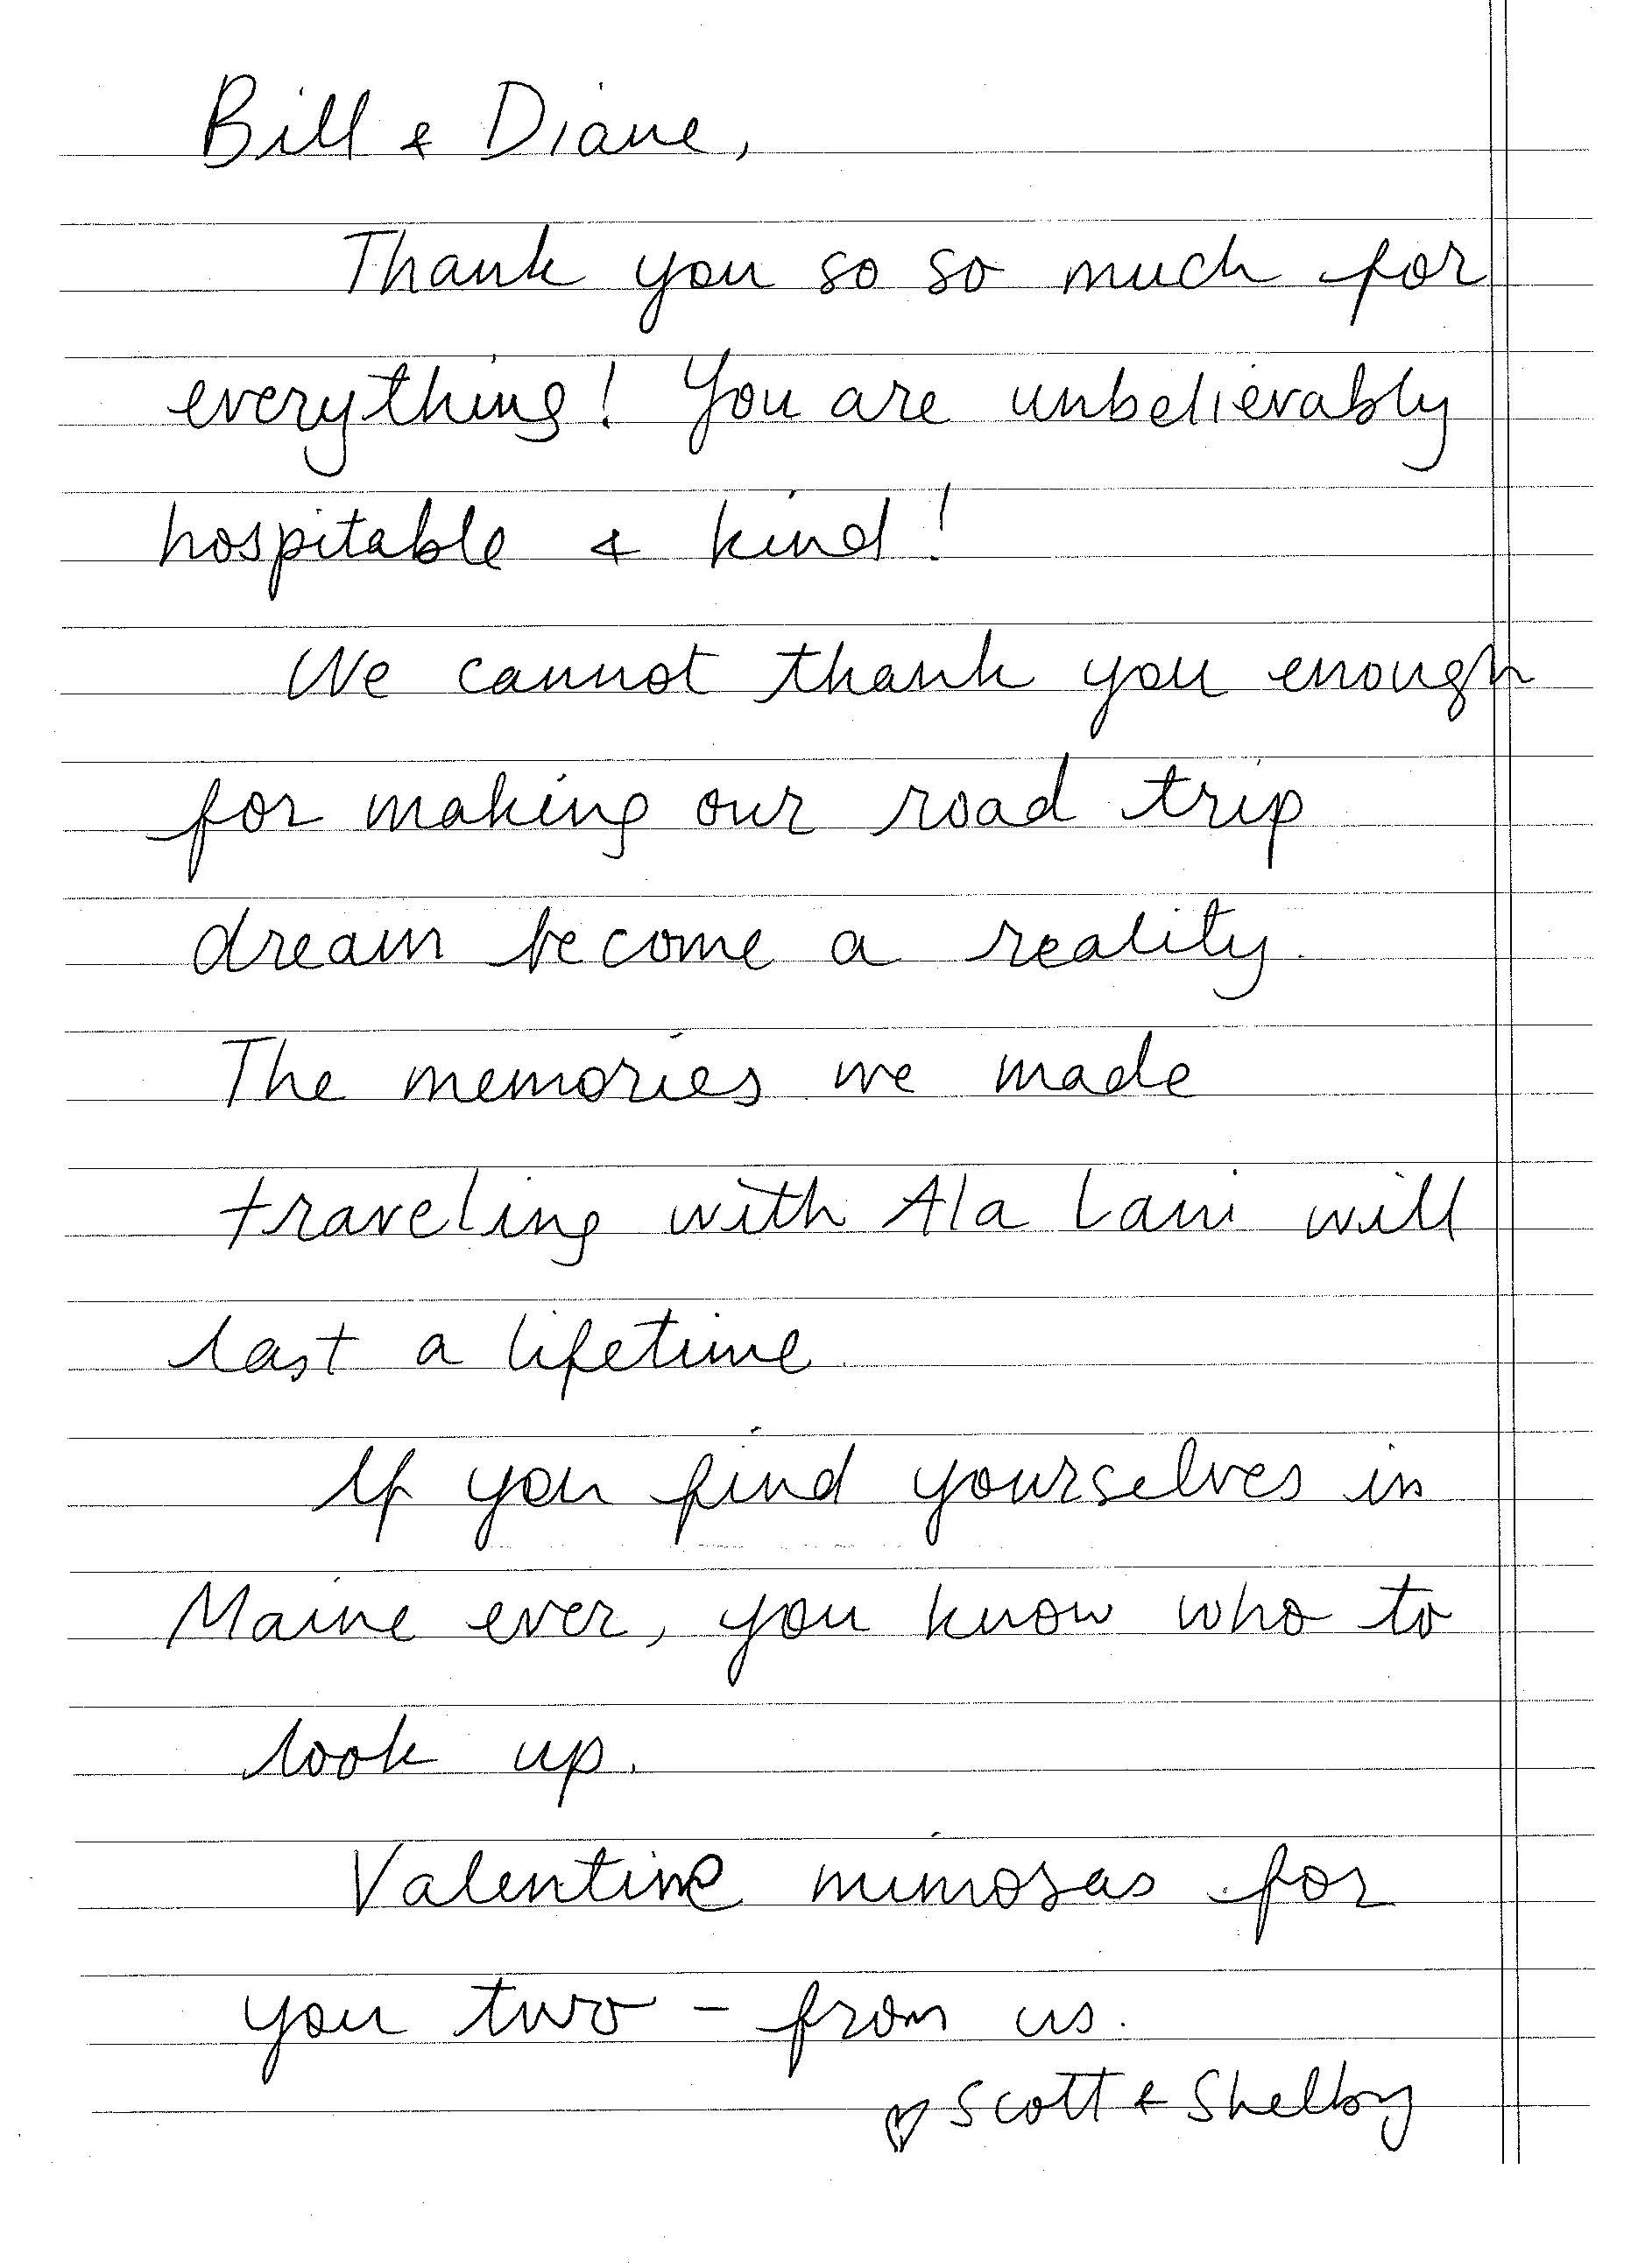 Bill & Diane,
Thank you so so much for
everything! You are unbelievably
hospitable & kind!
We cannot thank you enough
for making our road trip
dream become a reality.
The memories we made
traveling with Ala Lani will
last a lifetime.
If you find yourselves in
Maine ever, you know who to
look up.
Valentine mimosas for
you two – from us.
♡ Scott & Shelby